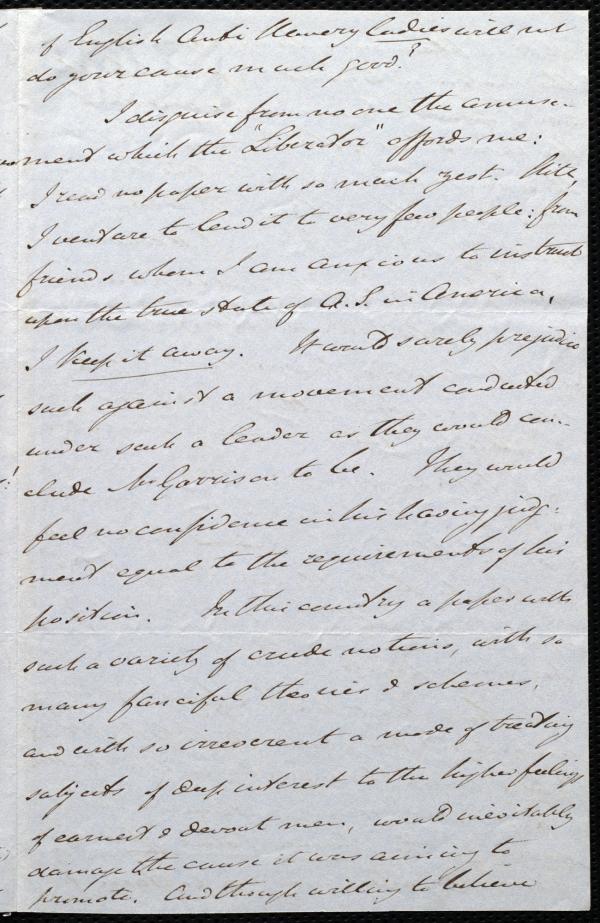 of English Anti Slavery Ladies will not
do your cause much good?
I disguise from no one the amuse-
ment which the "Liberator" affords me:
I read no paper with so much zest. Still,
I venture to lend it to very few people: from
friends whom I am anxious to instruct
upon the true state of A.S. in America,
I keep it away. It would surely prejudice
such against a movement conducted
under such a leader as they would con-
clude Mr Garrison to be. They would
feel no confidence in his having judg-
ment equal to the requirements of his
position. In this country a paper with
such a variety of crude notions, with so
many fanciful theories & schemes,
and with so irreverent a mode of treating
subjects of deep interest to the higher feelings
of earnest & devout men, would inevitably
damage the cause it was aiming to
promote. And though willing to believe